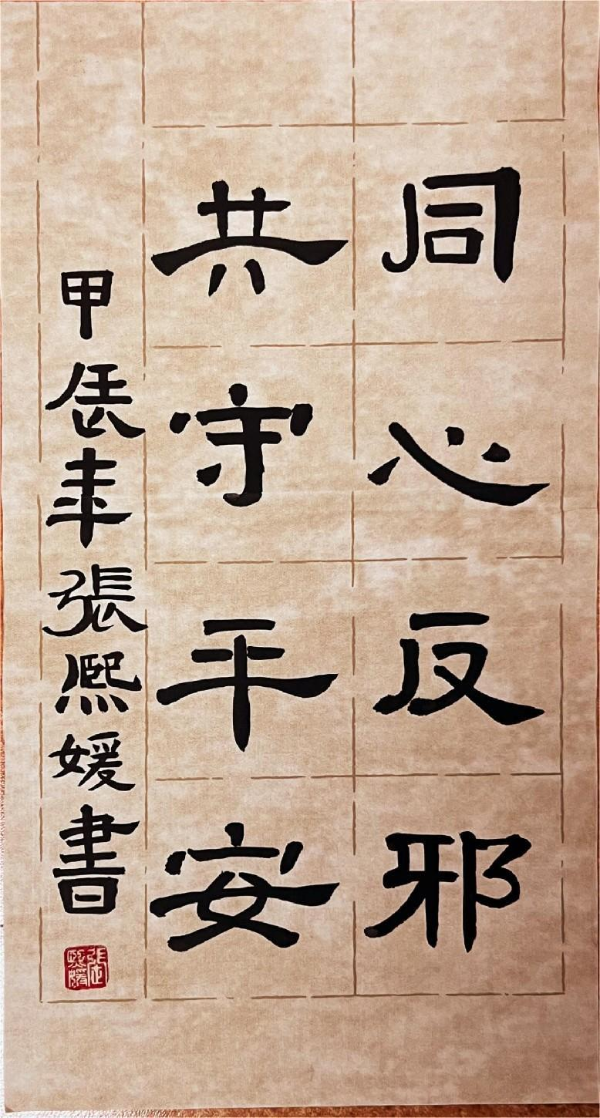 同心反邪
共守平安
甲辰年張熙媛書
張熙媛